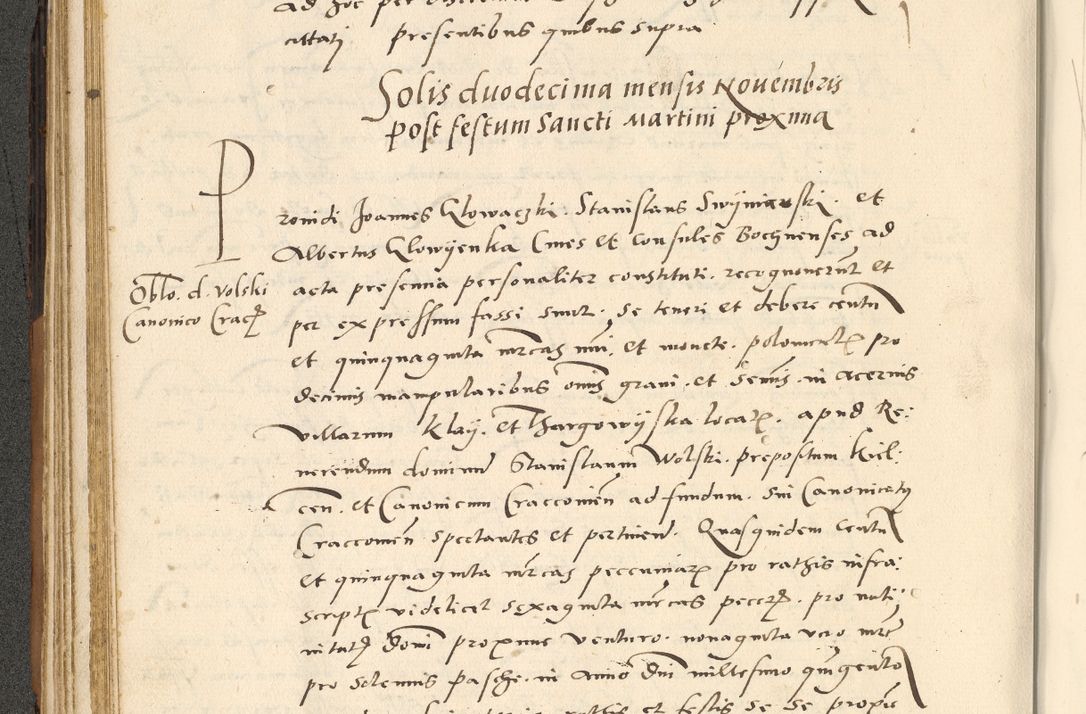 ad hoc per
cittati presentibus quibus supra
Solis duodecima mensis Novembris
post festum Sancti Martini proxima
Providi Joannes Glowaczki. Stanislaus Swyniarski. et
Albertus Glowyenka Cives et Consules Bochnenses ad
acta presentia personaliter constituti. recognoverunt et
per expressum fassi sunt. se teneri et debere centu
et quinquaginta mrcas mui. et monete. polonical pro
decimis manipularibus omis grani. et seminis. in acervis
villarum Klay. et Thargowyska locar. apud Re:
verendum dominum Stanislaum Wolski. prepositum Kiel:
cen. et Canonicum Cracovien ad fundum. sui Canonicatus
Cracovien spectantes et pertinen. Quasquidem centu
et quinquaginta mrcas peccuniar pro rathis infra:
script videlicet sexaginta mrcas peccar. pro nati:
vitate Domi proxime venturo. nonaginta vero mrc
pro solennis Pasche. in anno Dni millesimo quigento
rathis et festis se se
Oblo. d. Volski
Canonico Crac